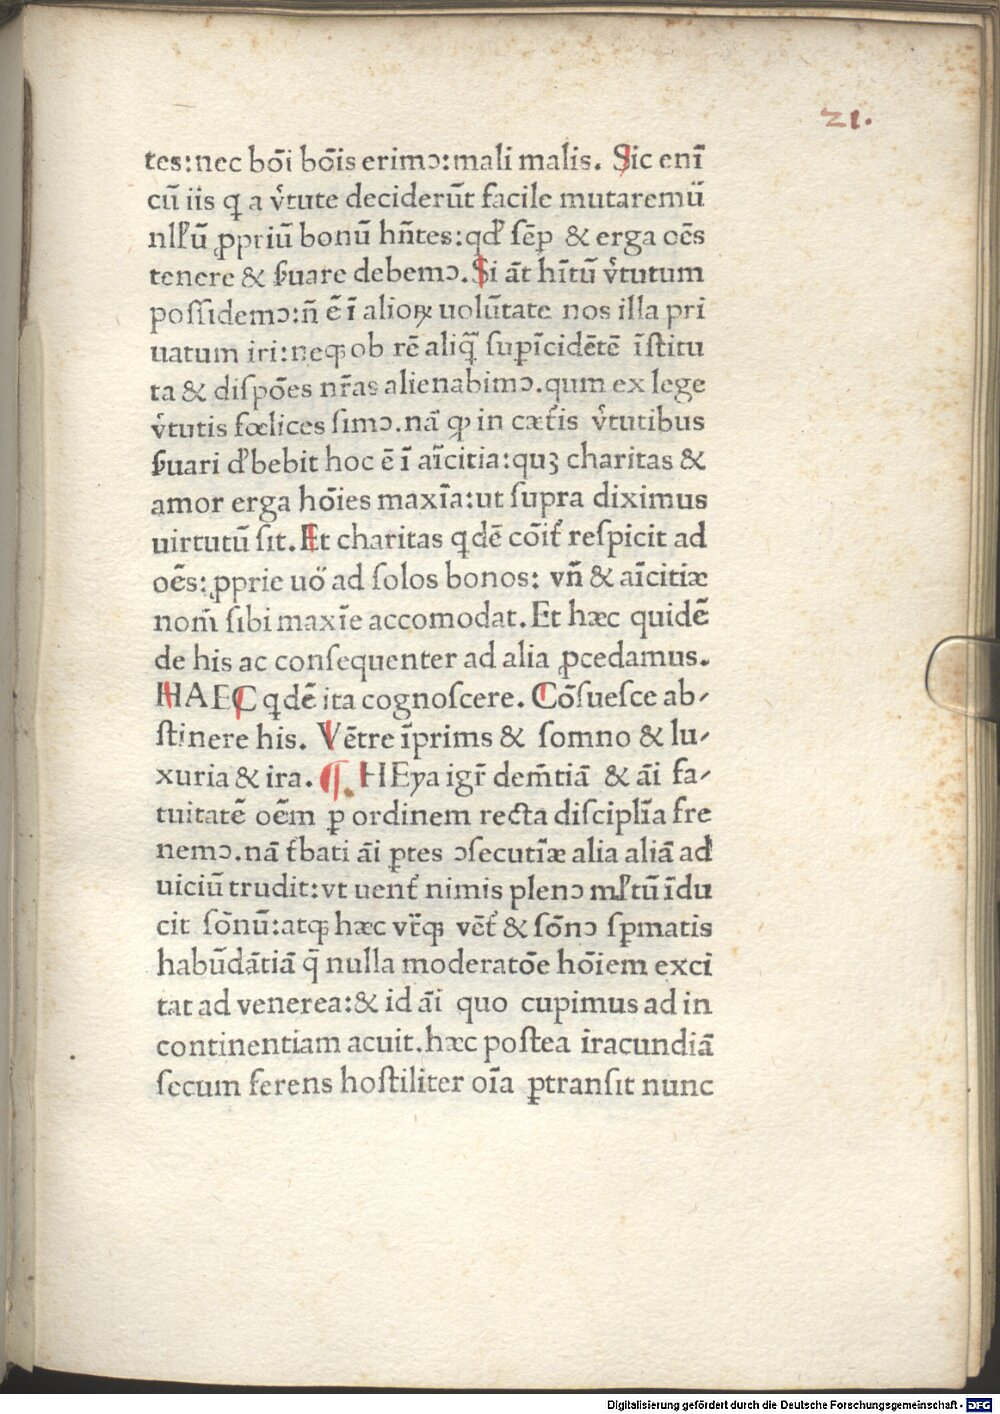 21.
tes:nec bōi bōis erimꝰ:mali malis. Sic enī
cū iis q a v̓tute deciderūt facile mutaremū
nllʼū ꝓpriū bonū hn̄tes:qdʼ sēꝑ & erga oēs
tenere & ẜuare debemꝰ. Si āt hītū v̓tutum
possidemꝰ:n̄ ē ī alioꝝ uolūtate nos illa pri
uatum iri:neqꝫ ob rē aliq̄ suꝑīcidētē īstitu
ta & dispōes nr̄as alienabimꝰ.qum ex lege
v̓tutis fœlices simꝰ.nā ꝙ in cæt̓is v̓tutibus
ẜuari dʼbebit hoc ē ī aīcitia:quꝫ charitas &
amor erga hōies maxīa:ut supra diximus
uirtutū sit. Et charitas qdē cōit̓ respicit ad
oēs: ꝓprie uo̎ ad solos bonos: vn̄ & aīcitiæ
nom̄ sibi maxīe accomodat. Et hæc quidē
de his ac consequenter ad alia ꝓcedamus.
HAEC qdē ita cognoscere. Cōsuesce ab-
stinere his. Vētre īprims & somno & lu-
xuria & ira. ¶ HEya igr̄ dem̄tiā & āi fa-
tuitatē oēm ꝑ ordinem recta disciplīa fre
nemꝰ.nā t̓bati āi ꝑtes ꝯsecutīæ alia aliā ad
uiciū trudit:vt uent̓ nimis plenꝰ mlʼtū īdu
cit sōnū:atqꝫ hæc vtr̄qꝫ vēt̓ & sōnꝰ sꝑmatis
habūdātiā q̄ nulla moderatōe hōiem exci
tat ad venerea:& id āi quo cupimus ad in
continentiam acuit.hæc postea iracundiā
secum ferens hostiliter oīa ꝑtransit nunc
Digitalisierung gefördert durch die Deutsche Forschungsgemeinschaft - DFG